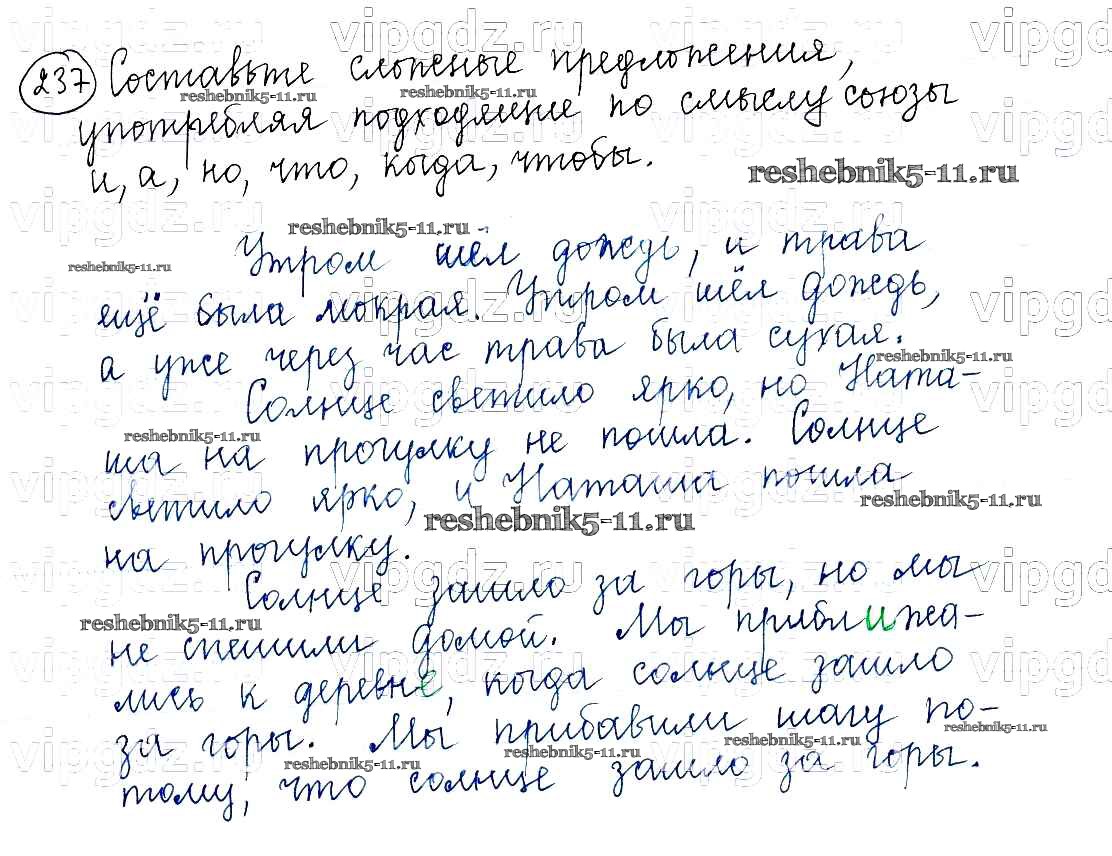 237 Составьте сложные предложения,
употребляя подходящие по смыслу союзы
и, а, но, что, когда, чтобы.
Утром шёл дождь, и трава
ещё была мокрая. Утром шёл дождь,
а уже через час трава была сухая.
Солнце светило ярко, но Ната-
ша на прогулку не пошла. Солнце
светило ярко, и Наташа пошла
на прогулку.
Солнце зашло за горы, но мы
не спешили домой. Мы приближа-
лись к деревне, когда солнце зашло
за горы. Мы прибавили шагу по-
тому, что солнце зашло за горы.
vipgdz.ru
reshebnik5-11.ru